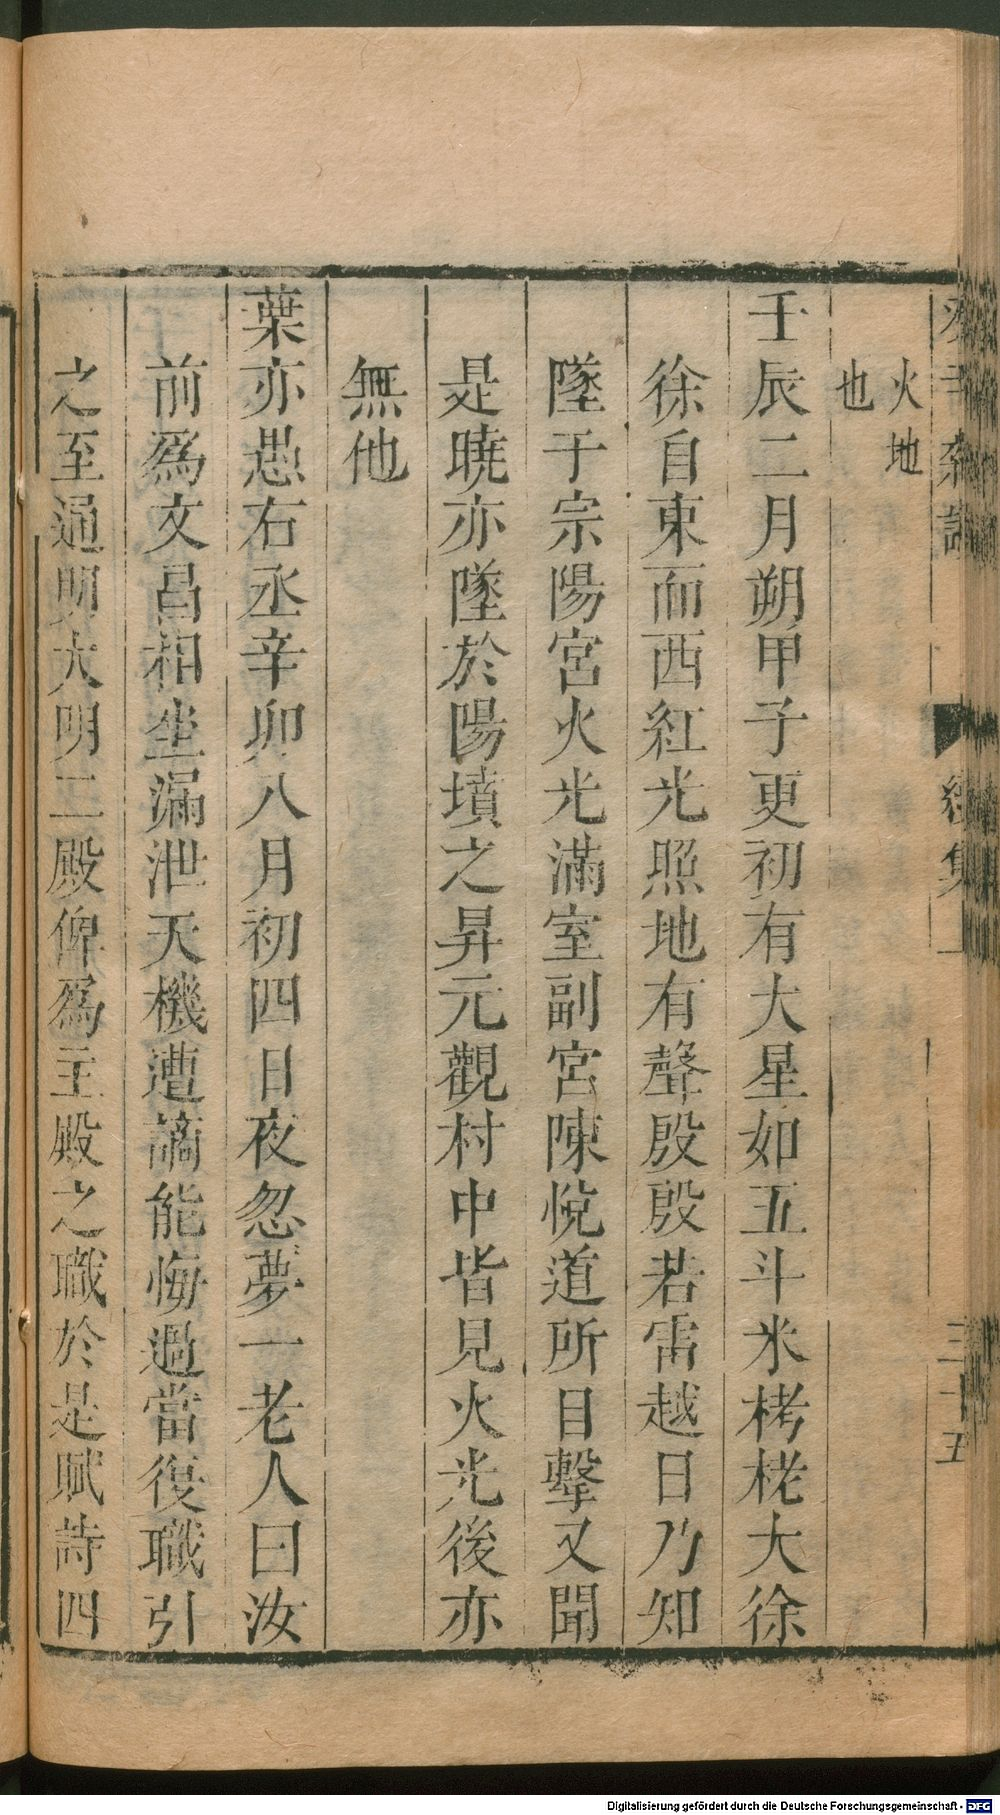 癸辛雜識
續集
三十五
火地
也
壬辰二月朔甲子更初有大星如五斗米栲栳大徐
徐自東而西紅光照地有聲殷殷若雷越日乃知
墜于宗陽宮火光滿室副宮陳悅道所目擊又聞
是曉亦墜於陽墳之昇元觀村中皆見火光後亦
無他
葉亦愚右丞辛卯八月初四日夜忽夢一老人曰汝
前爲文昌相坐漏泄天機遭謫能悔過當復職引
之至通明大明二殿俾爲主殿之職於是賦詩四
Digitalisierung gefördert durch die Deutsche Forschungsgemeinschaft - DFG